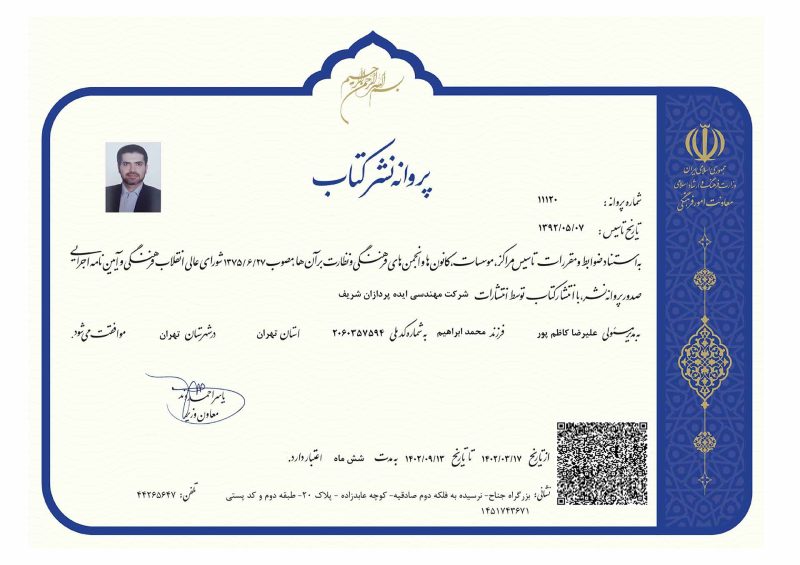 بسم الله الرحمن الرحیم
جمهوری اسلامی ایران
وزارت فرهنگ و ارشاد اسلامی
معاونت امور فرهنگی
پروانه نشر کتاب
شماره پروانه: ۱۱۱۲۰
تاریخ تاسیس: ۱۳۹۲/۰۵/۰۷
به استناد ضوابط و مقررات تاسیس مراکز، موسسات، کانون ها و انجمن های فرهنگی و نظارت بر آن ها مصوب ۱۳۷۵/۶/۲۷ شورای عالی انقلاب فرهنگی و آیین نامه اجرایی
صدور پروانه نشر، با انتشار کتاب توسط انتشارات شرکت مهندسی ایده پردازان شریف
به مدیر مسئولی علیرضا کاظم پور فرزند محمد ابراهیم به شماره کد ملی ۲۰۶۰۳۵۷۵۹۴ استان تهران در شهرستان تهران موافقت می شود.
یاسر احمدوند
معاون وزیر
از تاریخ ۱۴۰۲/۰۳/۱۷ تا تاریخ ۱۴۰۲/۰۹/۱۳ به مدت شش ماه اعتبار دارد.
نشانی: بزرگراه جناح- نرسیده به فلکه دوم صادقیه- کوچه عابدزاده - پلاک ۲۰- طبقه دوم و کد پستی تلفن: ۴۴۲۶۵۶۴۷
۱۴۵۱۷۴۳۶۷۱